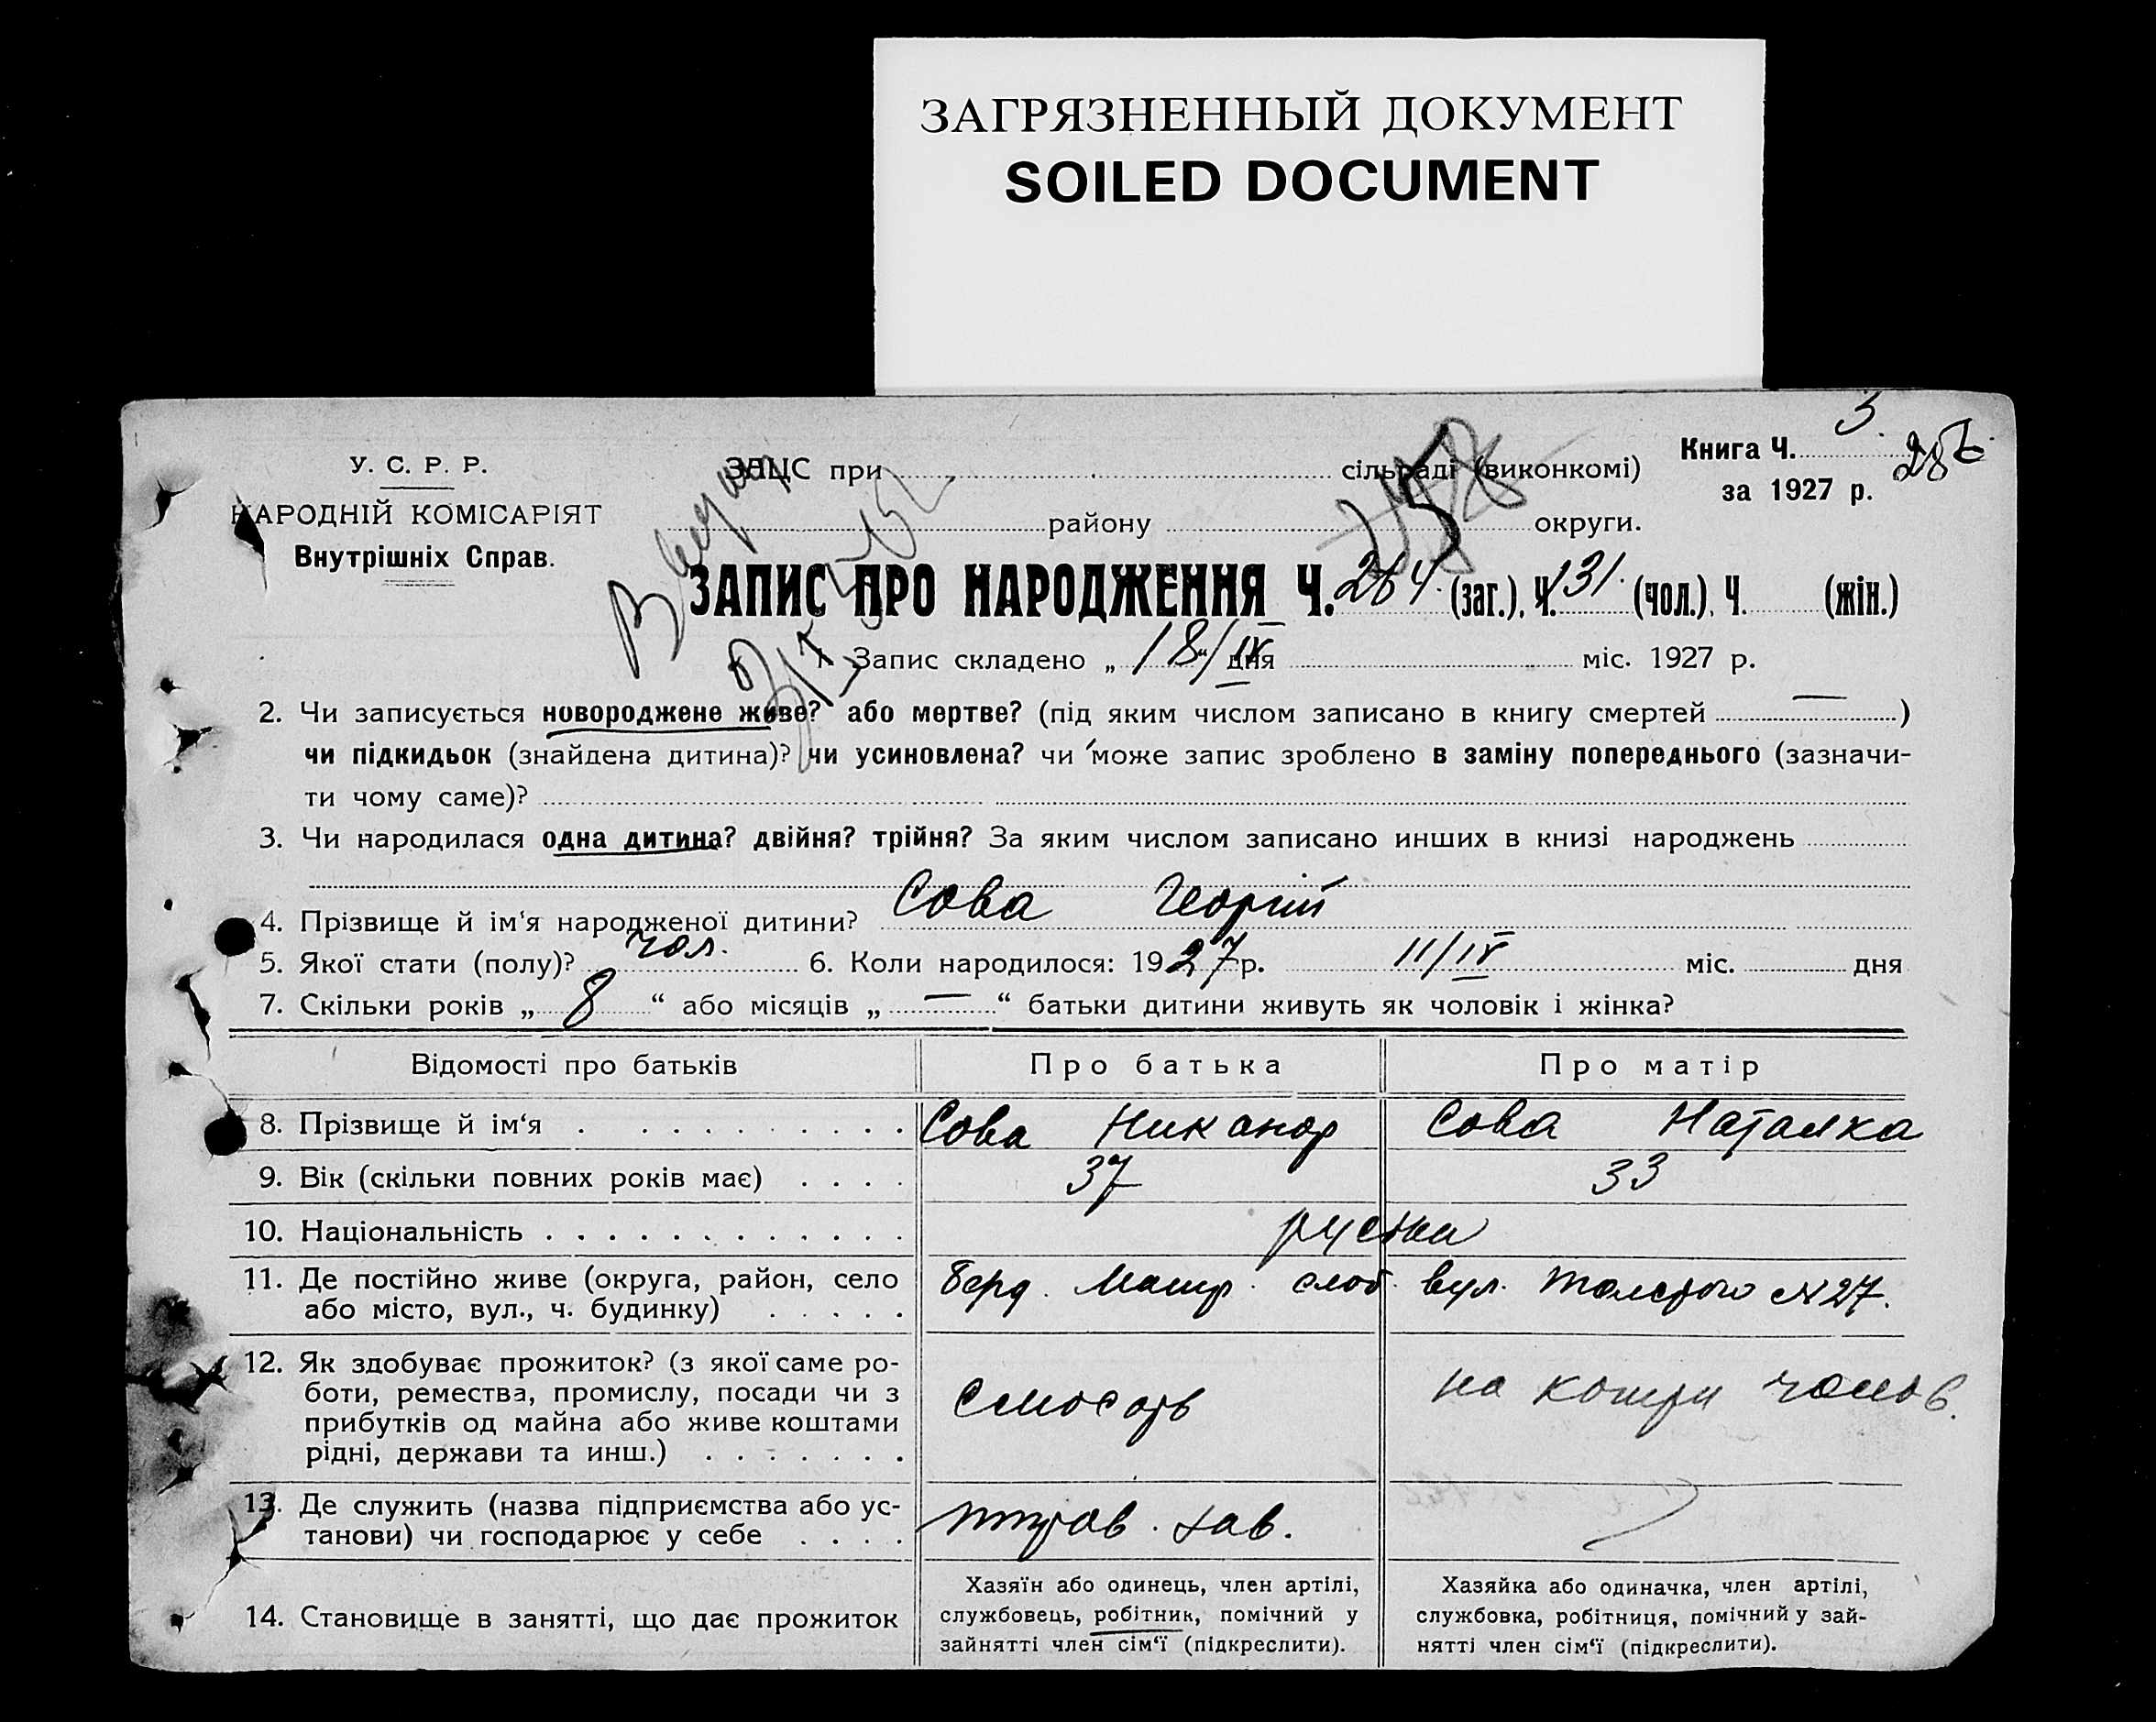 ЗАГРЯЗНЕННЫЙ ДОКУМЕНТ
SOILED DOCUMENT
У. С. Р. Р.
НАРОДНІЙ КОМІСАРІЯТ
Внутрішніх Справ.
ЗАЦС при сільраді (виконкомі)
району округи.
Книга Ч. 3.
за 1927 р.
ЗАПИС ПРО НАРОДЖЕННЯ Ч. 264. (заг.), Ч. 131. (чол.), Ч. (жін.)
1. Запис складено „ 18/IV “ дня міс. 1927 р.
2. Чи записується новороджене живе? або мертве? (під яким числом записано в книгу смертей — )
чи підкидьок (знайдена дитина)? чи усиновлена? чи може запис зроблено в заміну попереднього (зазначи-
ти чому саме)?
3. Чи народилася одна дитина? двійня? трійня? За яким числом записано инших в книзі народжень
4. Прізвище й ім‘я народженої дитини? Сова Георгій
5. Якої стати (полу)? чол. 6. Коли народилося: 1927 р. 11/IV міс. дня
7. Скільки років „ 8 “ або місяців „ — “ батьки дитини живуть як чоловік і жінка?
Відомості про батьків Про батька Про матір
8. Прізвище й ім‘я Сова Никанор Сова Наталка
9. Вік (скільки повних років має) 37 33
10. Національність
11. Де постійно живе (округа, район, село
або місто, вул., ч. будинку) слоб. вул. Толстого №27.
12. Як здобуває прожиток? (з якої саме ро-
боти, ремества, промислу, посади чи з
прибутків од майна або живе коштами
рідні, держави та инш.) на кошти чолов.
13. Де служить (назва підприємства або ус-
танови) чи господарює у себе зав.
14. Становище в занятті, що дає прожиток
Хазяїн або одинець, член артілі,
службовець, робітник, помічний у
зайнятті член сім‘ї (підкреслити).
Хазяйка або одиначка, член артілі,
службовка, робітниця, помічний у зай-
нятті член сім‘ї (підкреслити).